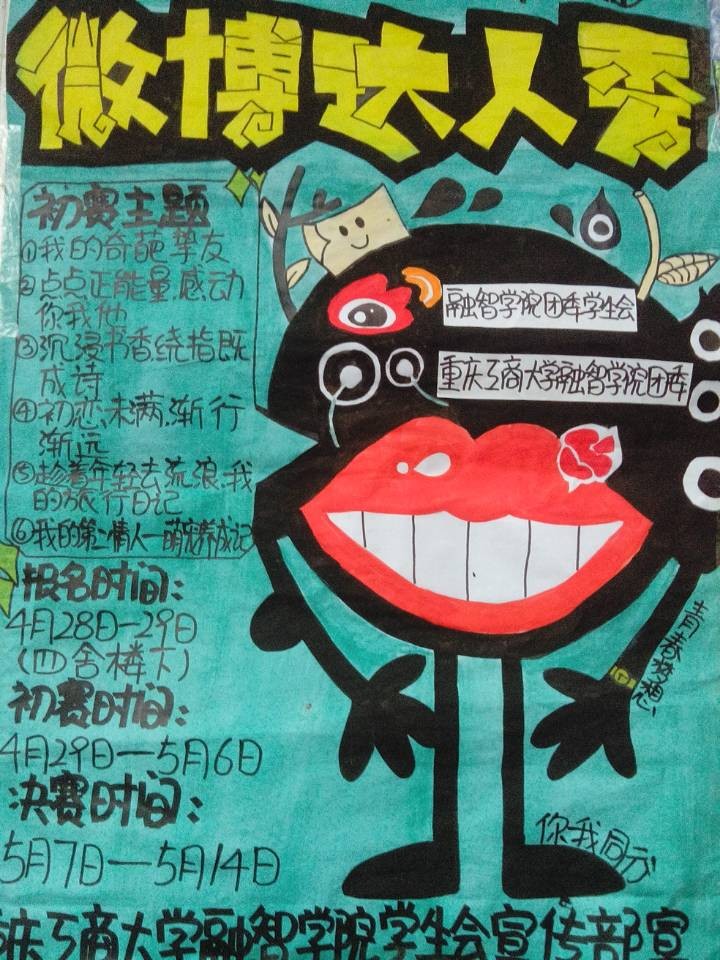 微博达人秀
初赛主题
①我的奇葩挚友
②点点正能量.感动
你我他
③沉浸书香绕指既
成诗
④初恋未满.渐行
渐远
⑤趁着年轻去流浪.我
的旅行日记
⑥我的第二情人—萌宠养成记
报名时间:
4月28日—29日
(四舍楼下)
初赛时间:
4月29日—5月6日
决赛时间:
5月7日—5月14日
融智学院团委学生会
重庆工商大学融智学院团委
青春梦想
你我同示
重庆工商大学融智学院学生会宣传部宣